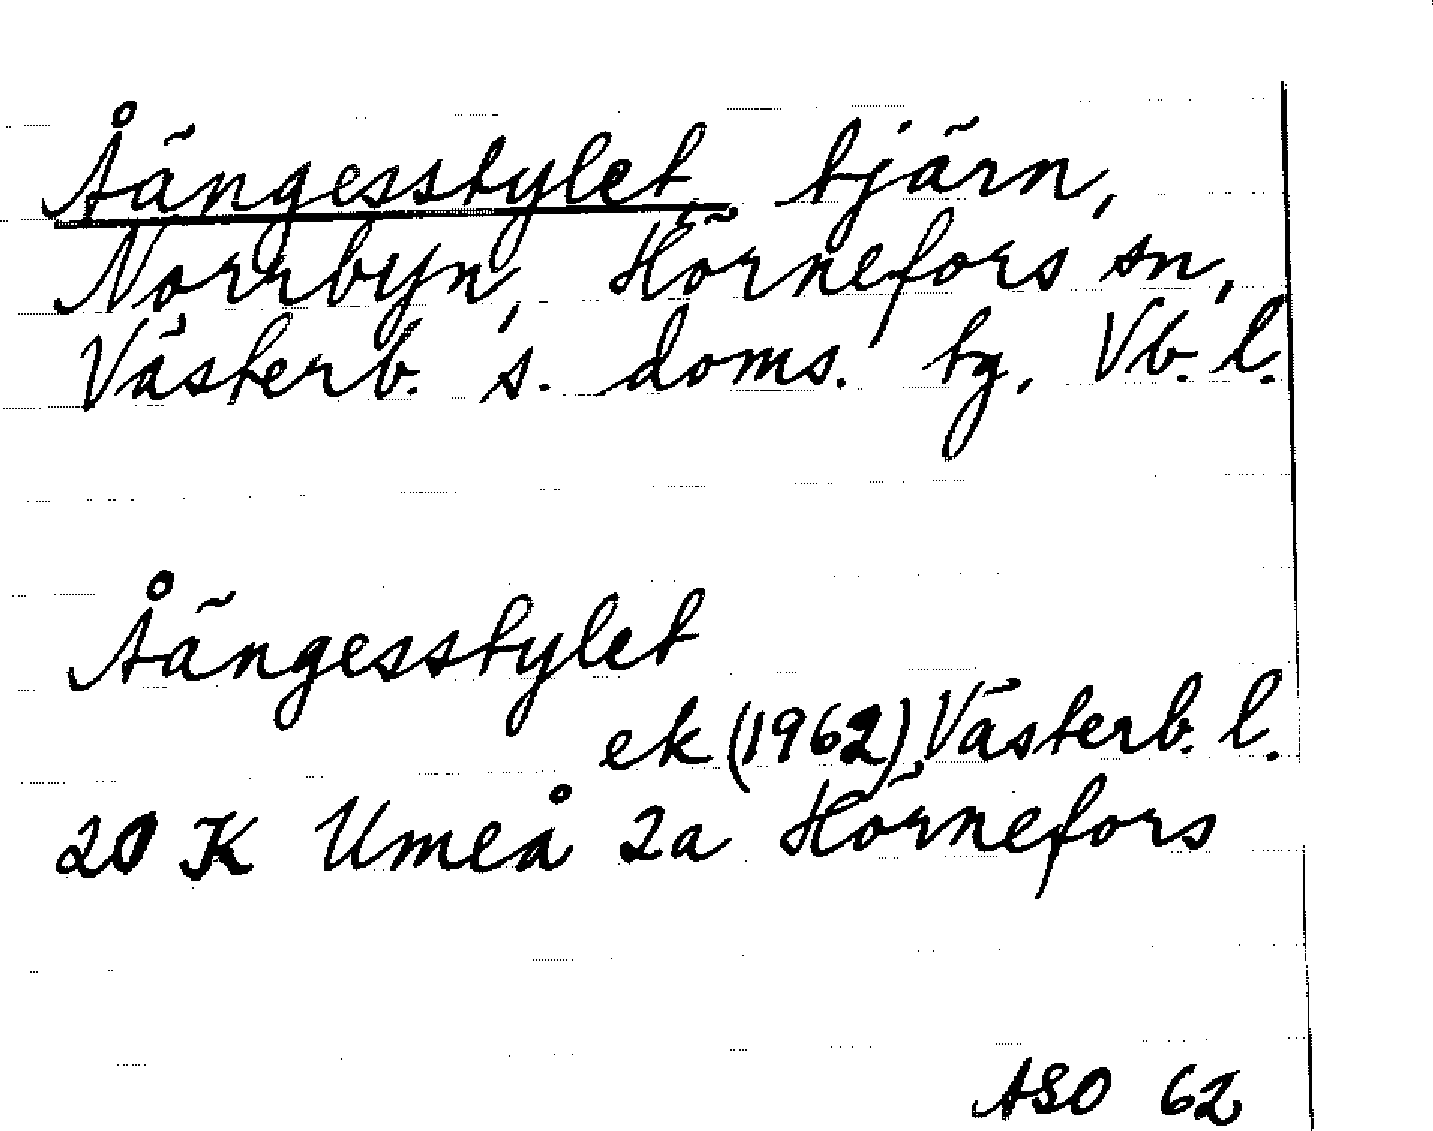 Åängesstylet, tjärn,
Norrbyn, Hörnefors sn,
Västerb. s. doms. tg. Vb. l.
Åängesstylet
ek (1962) Västerb. l.
20 K Umeå 2a Hörnefors
ASO 62